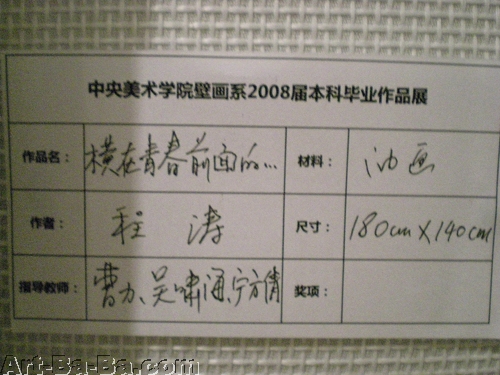 中央美术学院壁画系2008届本科毕业作品展
作品名： 横在青春前面的... 材料： 油画
作者： 程涛 尺寸： 180cm X 140cm
指导教师： 曹力、吴啸海、宁方倩 奖项：
Art-Ba-Ba.com